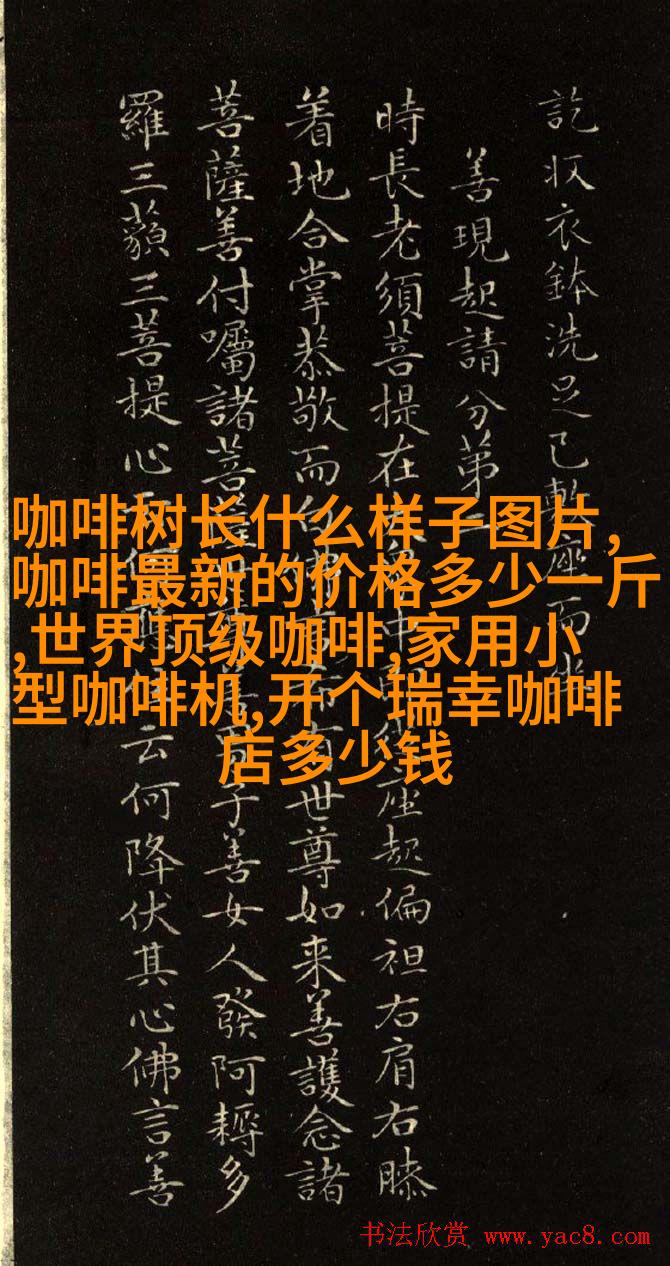 訖収衣鉢洗足已敷座而
善現起請分第
時長老須菩提在中座起偏袒右肩右膝
着地合掌恭敬而有世尊如来善護念諸
菩薩善付囑諸菩子善女人發阿耨多
羅三藐三菩提心云何降伏其心佛言善
咖啡树长什么样子图片,
咖啡最新的价格多少一斤
,世界顶级咖啡,家用小
型咖啡机,开个瑞幸咖啡
店多少钱
书法欣赏 www.yac8.com